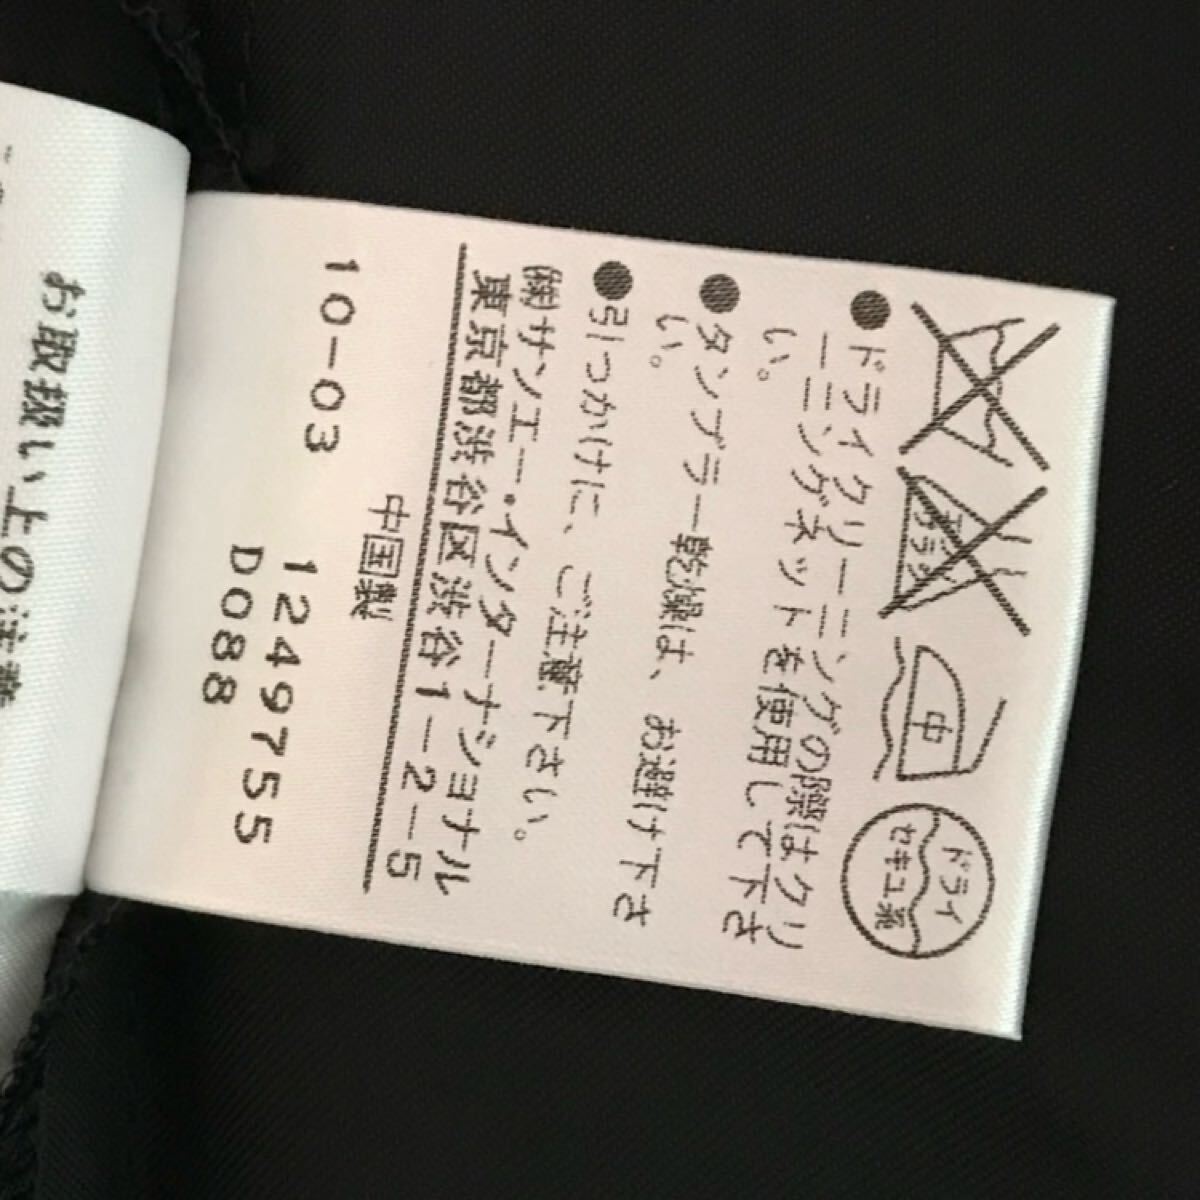 エンソ
サラシ
中
ドライ
セキユ系
●ドライクリーニングの際はクリ
ーニングネットを使用して下さ
い。
●タンブラー乾燥は、お避け下さ
い。
●引っかけに、ご注意下さい。
㈱サンエー・インターナショナル
東京都渋谷区渋谷1-2-5
中国製
10-03
1249755
D088
お取扱い上の注意